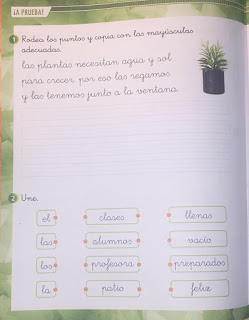 ¡A PRUEBA!
1 Rodea los puntos y copia con las mayúsculas
adecuadas.
las plantas necesitan agua y sol
para crecer. por eso las regamos
y las tenemos junto a la ventana.
2 Une.
el clases llenas
las alumnos vacío
los profesora preparados
la patio feliz